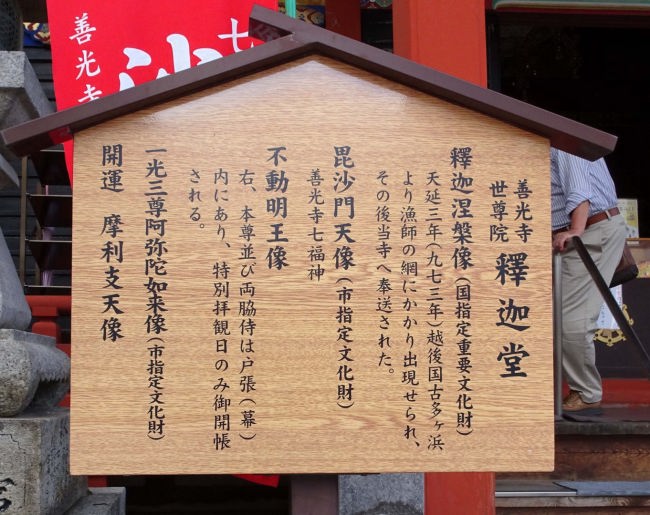 善光寺
世尊院
釋迦堂
釋迦涅槃像(国指定重要文化財)
天延三年(九七三年)越後国古多ヶ浜
より漁師の網にかかり出現せられ、
その後当寺へ奉送された。
毘沙門天像(市指定文化財)
善光寺七福神
不動明王像
右、本尊並び両脇侍は戸張(幕)
内にあり、特別拝観日のみ御開帳
される。
一光三尊阿弥陀如来像(市指定文化財)
開運 摩利支天像
七
善光寺
沙